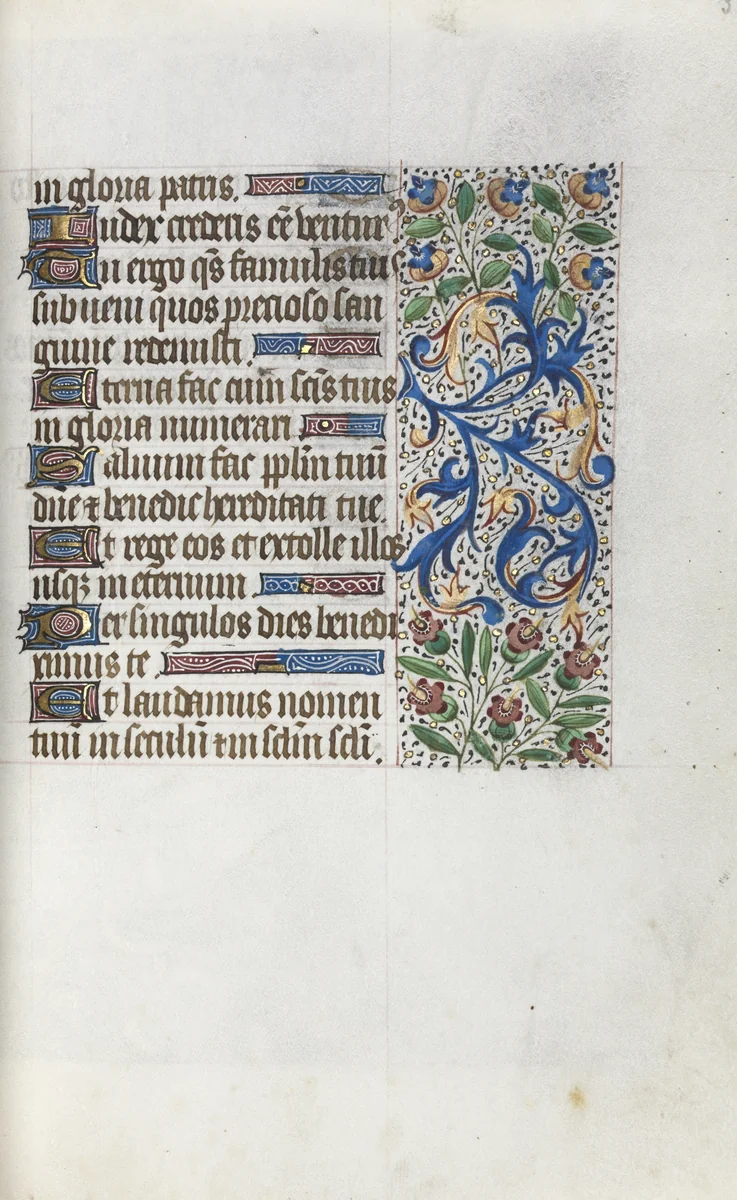 in gloria patris.
Iudex crederis cẽ ventur⁹
Tu ergo q̃s famulis tuis
subueni quos precioso san
guine redemisti.
Eterna fac cum sc̃is tuis
in gloria numerari.
Saluum fac pp̄lm tuū
dn̄e ⁊ benedic hereditati tue.
Et rege eos et extolle illos
usqȝ in eternum
Per singulos dies benedi
cimus te
Et laudamus nomen
tuū in seculū ⁊ in sc̄lm sc̄li.